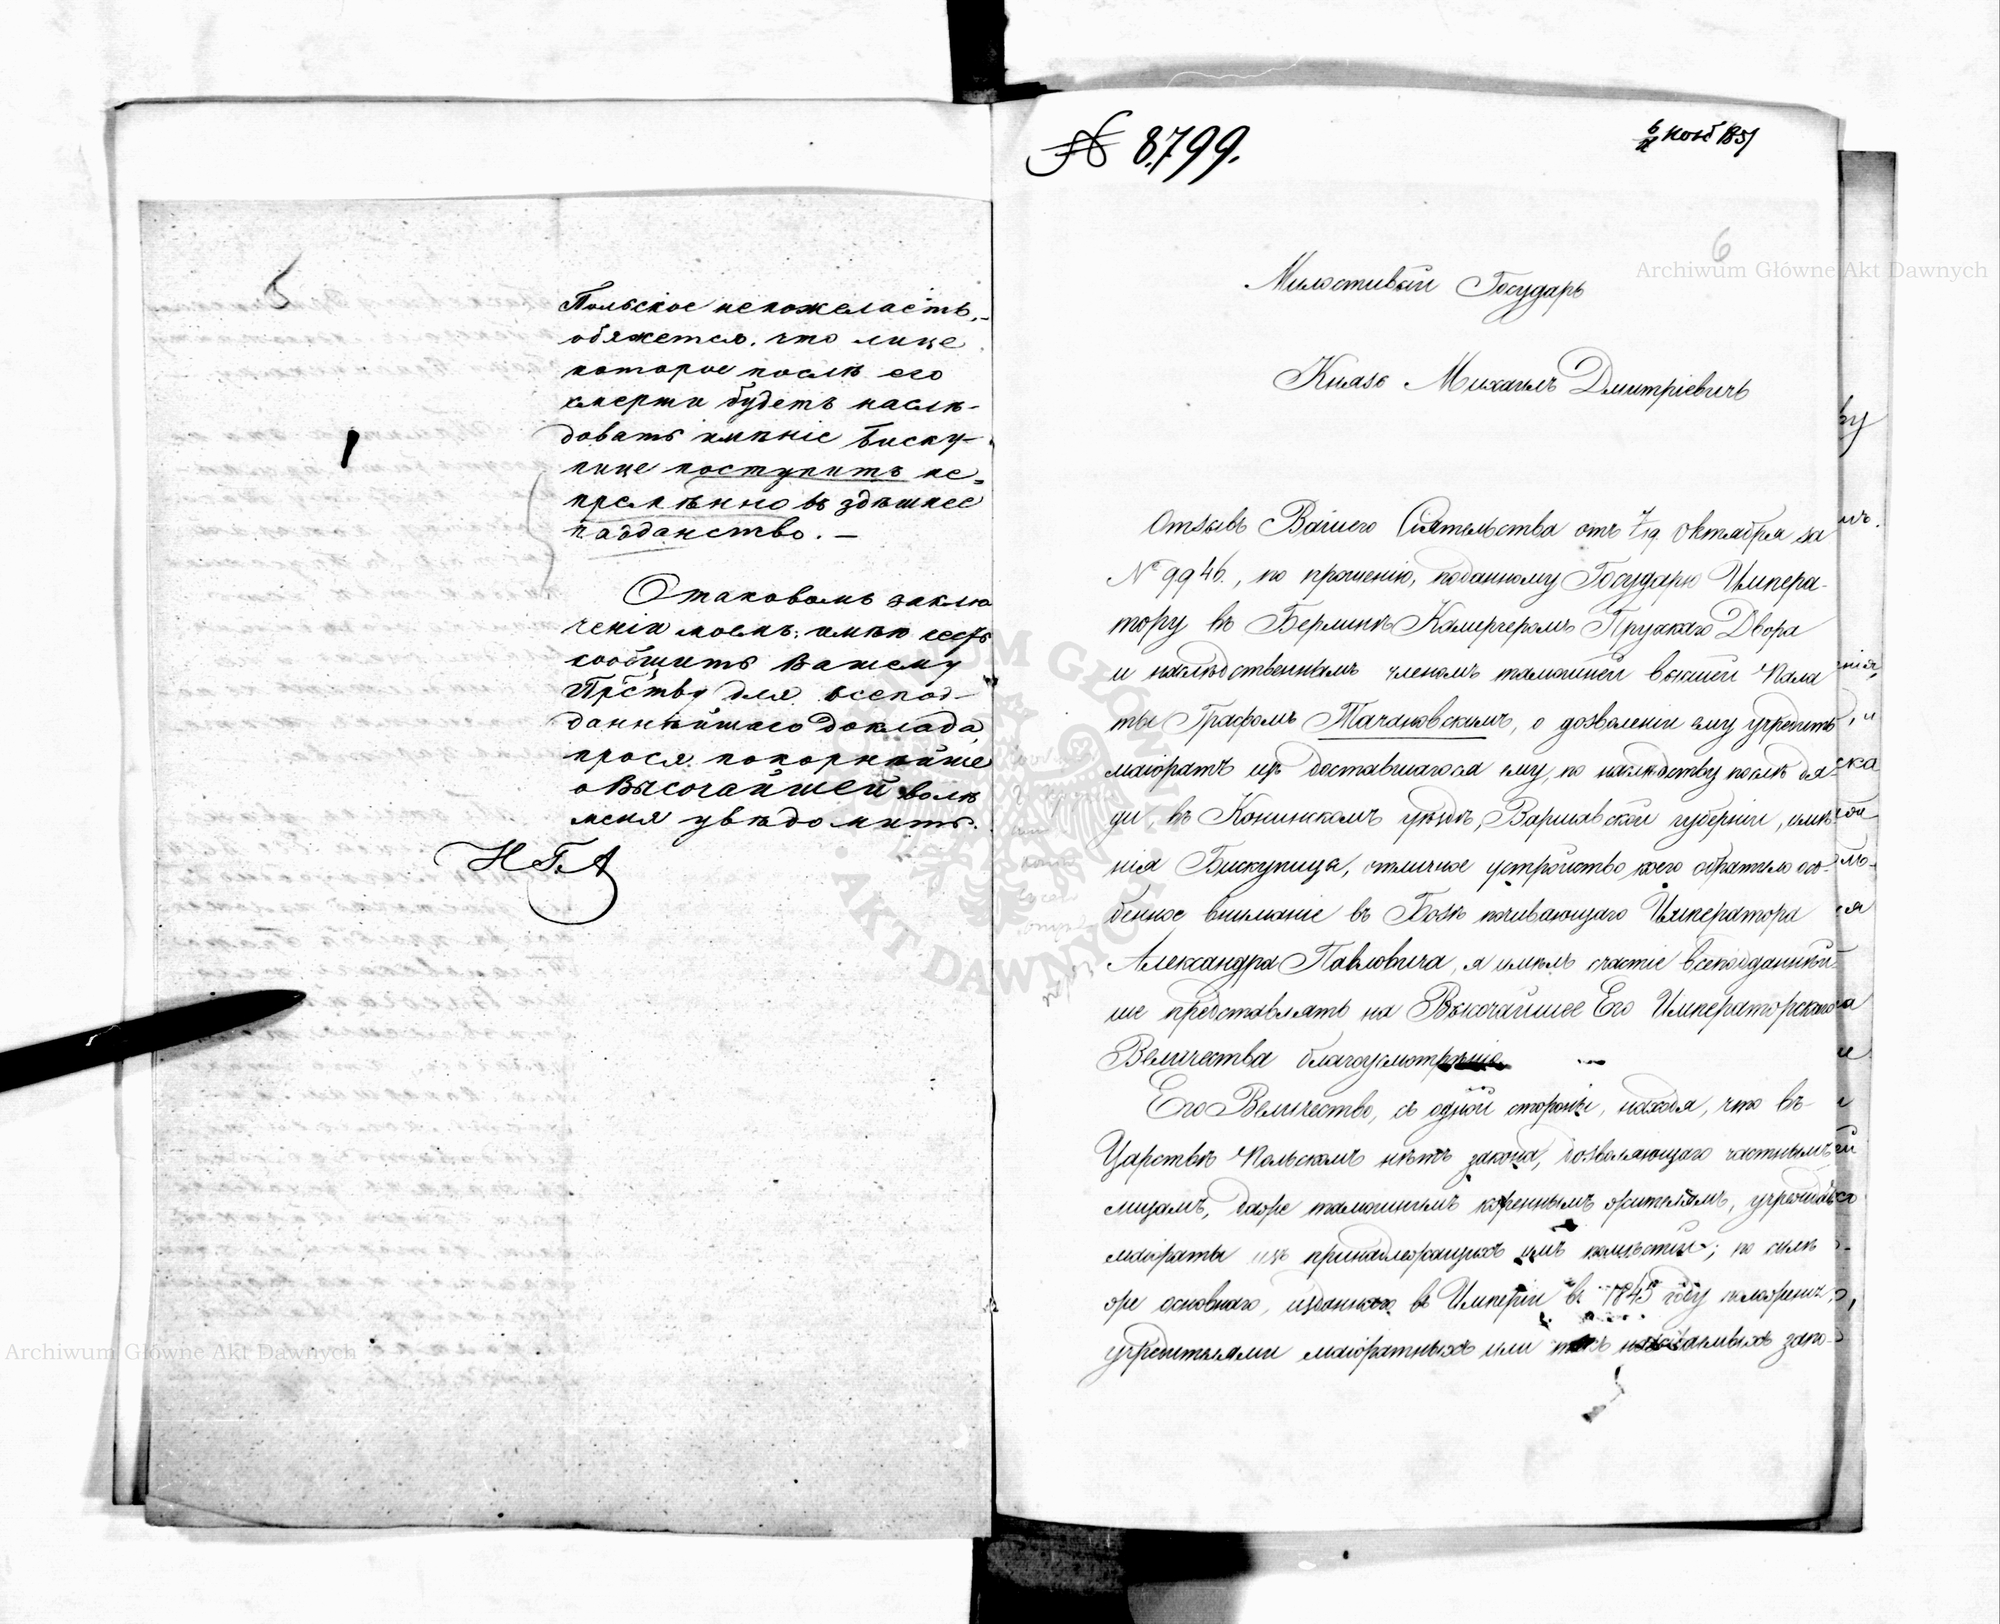 5
Польское не пожелаетъ,
обяжется, что лице
которое послѣ его
смерти будетъ наслѣ-
довать имѣніе Биску-
пице поступитъ не-
премѣнно въ здѣшнее
подданство. —
О таковомъ заклю
ченіи моемъ, имѣю честь
сообщить Вашему
Прству для всепод-
даннѣйшаго доклада,
прося покорнѣйше
о Высочайшей волѣ
меня увѣдомить.
№ 8,799.
6
Милостивый Государь
Князь Михаилъ Дмитріевичъ
Отзывъ Вашего Сіятельства отъ 7/19 Октября за
№ 9946., по прошенію, поданному Государю Импера-
тору въ Берлинѣ Камергеромъ Прускаго Двора
и наслѣдственнымъ членомъ тамошней высшей Пала
ты Графомъ Тачановскимъ, о дозволеніи ему учредить
маіоратъ изъ доставшагося ему, по наслѣдству послѣ дя-
ди, въ Конинскомъ уѣздѣ, Варшавской губерніи, имѣ-
нія Бискупица, отличное устройство коего обратило осо-
бенное вниманіе въ Бозѣ почивающаго Императора
Александра Павловича, я имѣлъ счастіе всеподданнѣй-
ше представлять на Высочайшее Его Императорскаго
Величества благоусмотрѣніе
Его Величество, съ одной стороны, находя, что въ
Царствѣ Польскомъ нѣтъ закона, дозволяющаго частнымъ
лицамъ, даже тамошнимъ кореннымъ жителямъ, учреждать
маіораты изъ принадлежащихъ имъ помѣстій; по силѣ
же основнаго, изданнаго въ Имперіи въ 1845 году положенія,
учредителями маіоратныхъ или такъ называемыхъ запо-
Archiwum Główne Akt Dawnych
Archiwum Główne Akt Dawnych